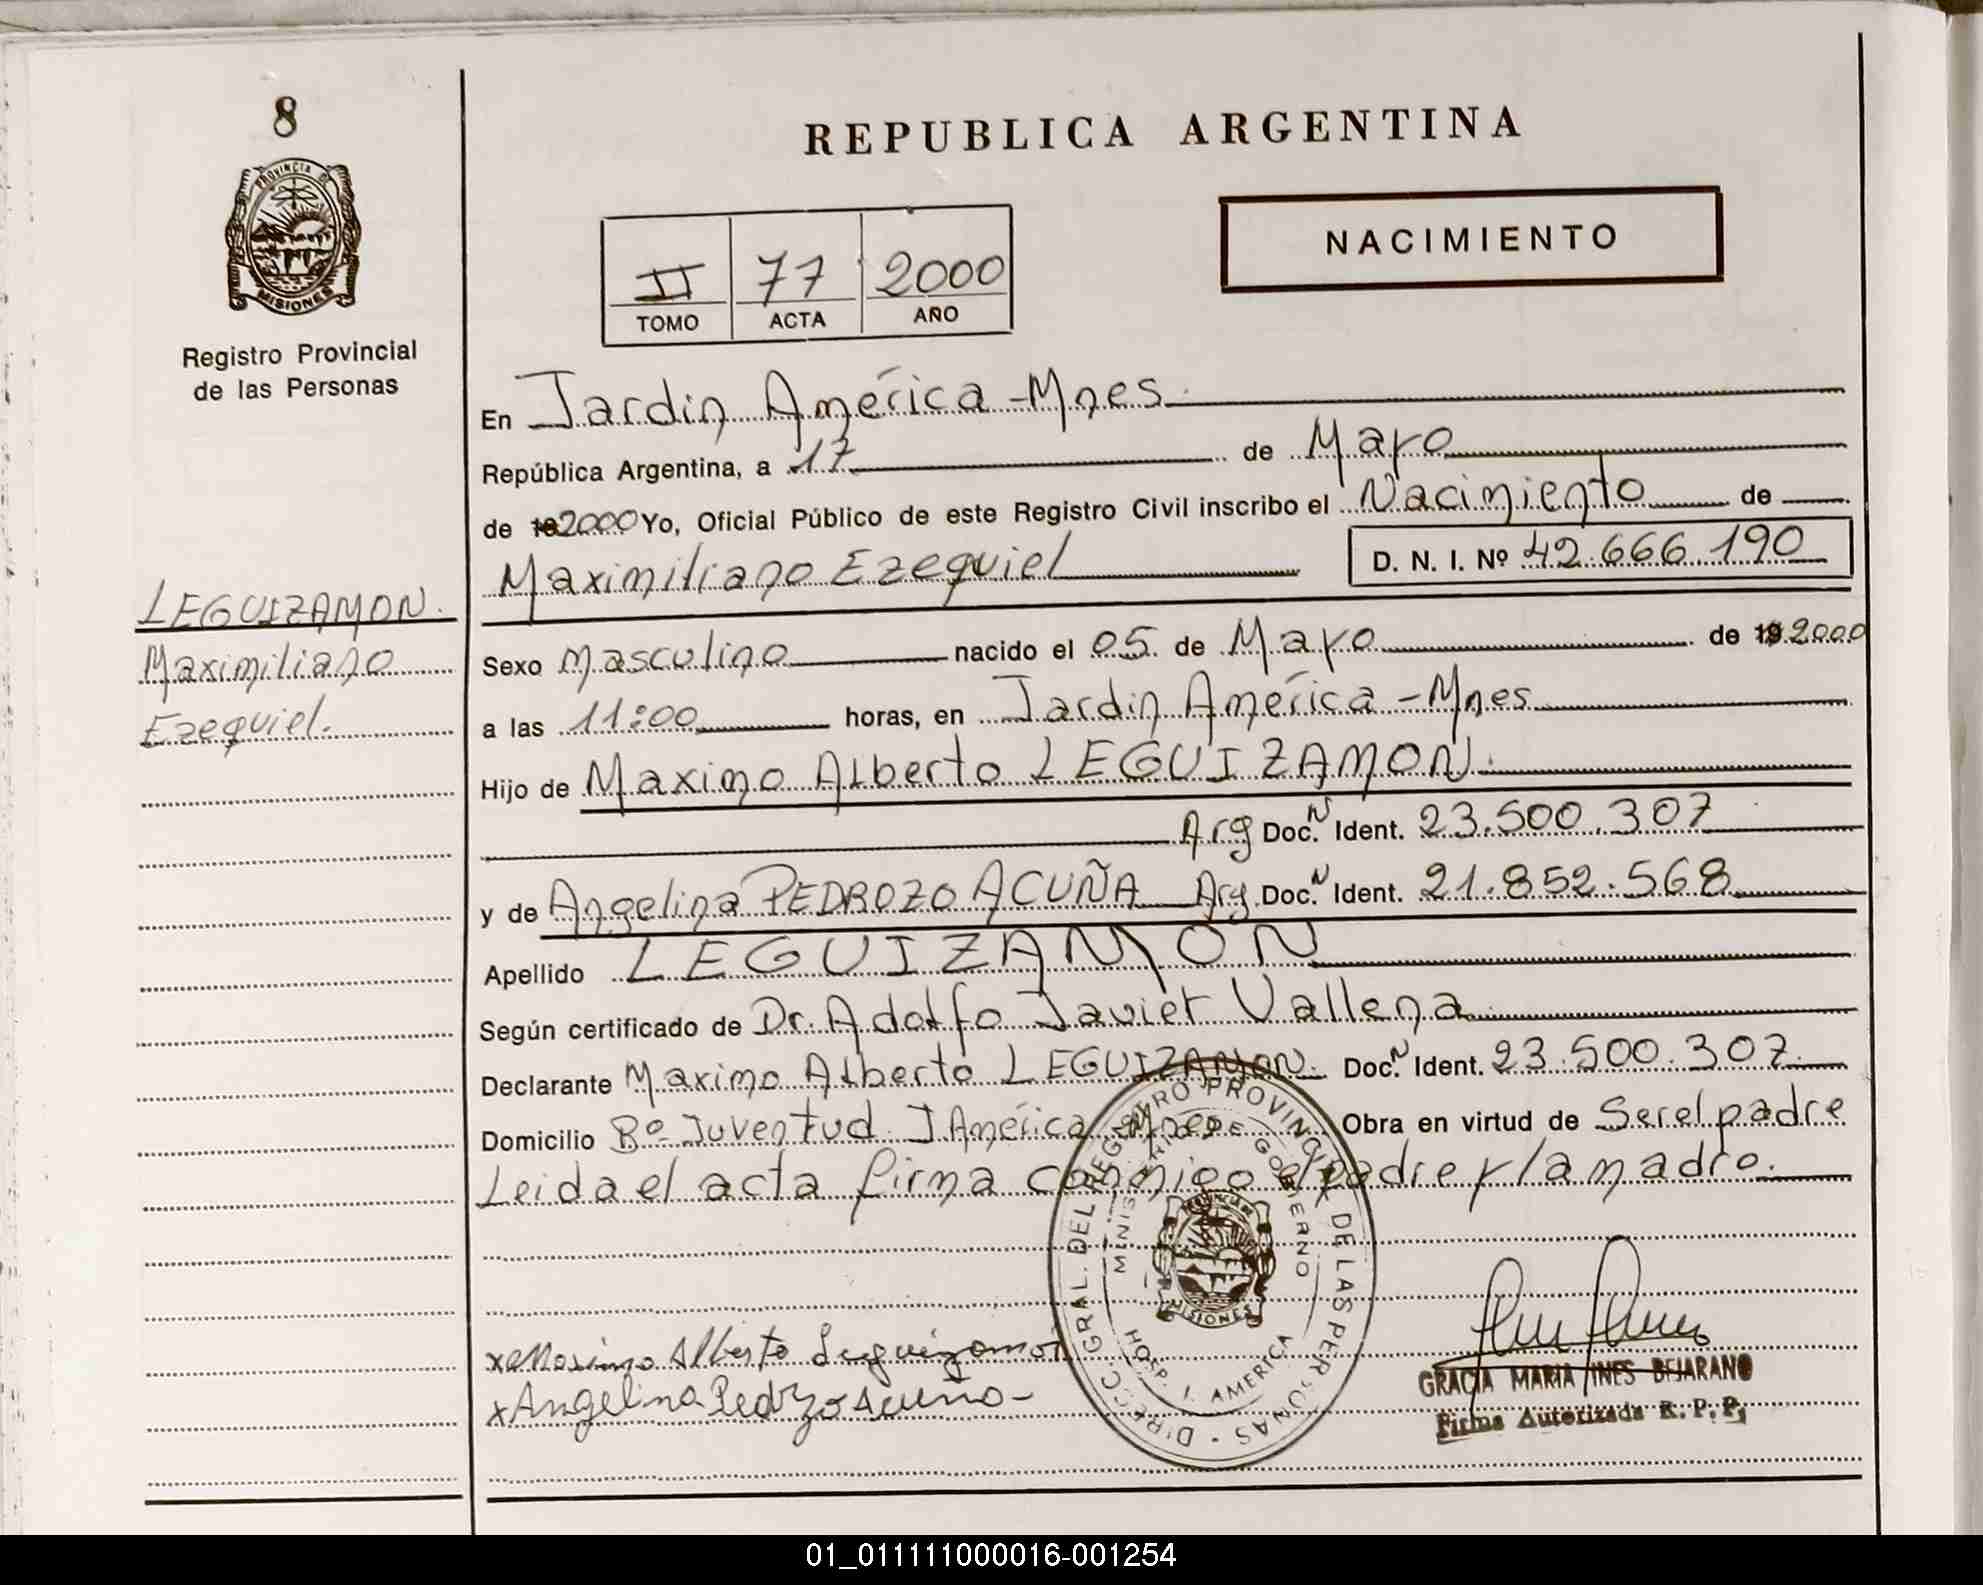 8
PROVINCIA DE
MISIONES
Registro Provincial
de las Personas
REPUBLICA ARGENTINA
II 77 2000
TOMO ACTA AÑO
NACIMIENTO
En Jardin América - Mnes.
República Argentina, a 17 de Mayo
de 2000 Yo, Oficial Público de este Registro Civil inscribo el Nacimiento de
Maximiliano Ezequiel D. N. I. Nº 42.666.190
LEGUIZAMON.
Maximiliano
Ezequiel.
Sexo Masculino nacido el 05 de Mayo de 19 2000
a las 11:00 horas, en Jardin América - Mnes
Hijo de Maximo Alberto LEGUIZAMON.
Arg Doc. N Ident. 23.500.307
y de Angelina PEDROZO ACUÑA Arg. Doc. N Ident. 21.852.568
Apellido LEGUIZAMON
Según certificado de Dr. Adolfo Javier Vallena
Declarante Maximo Alberto LEGUIZAMON. Doc. N Ident. 23.500.307.
Domicilio Bº Juventud J América Mnes Obra en virtud de Ser el padre
Leida el acta firma conmigo el padre y la madre.
DIRECC. GRAL. DEL REGISTRO PROVINCIAL DE LAS PERSONAS
MINISTERIO DE GOBIERNO
MISIONES
HOSP. J. AMERICA
x Maximo Alberto Leguizamon
x Angelina Pedrozo Acuña
GRACIA MARIA INES BEJARANO
Firma Autorizada R. P. P.
01_011111000016-001254